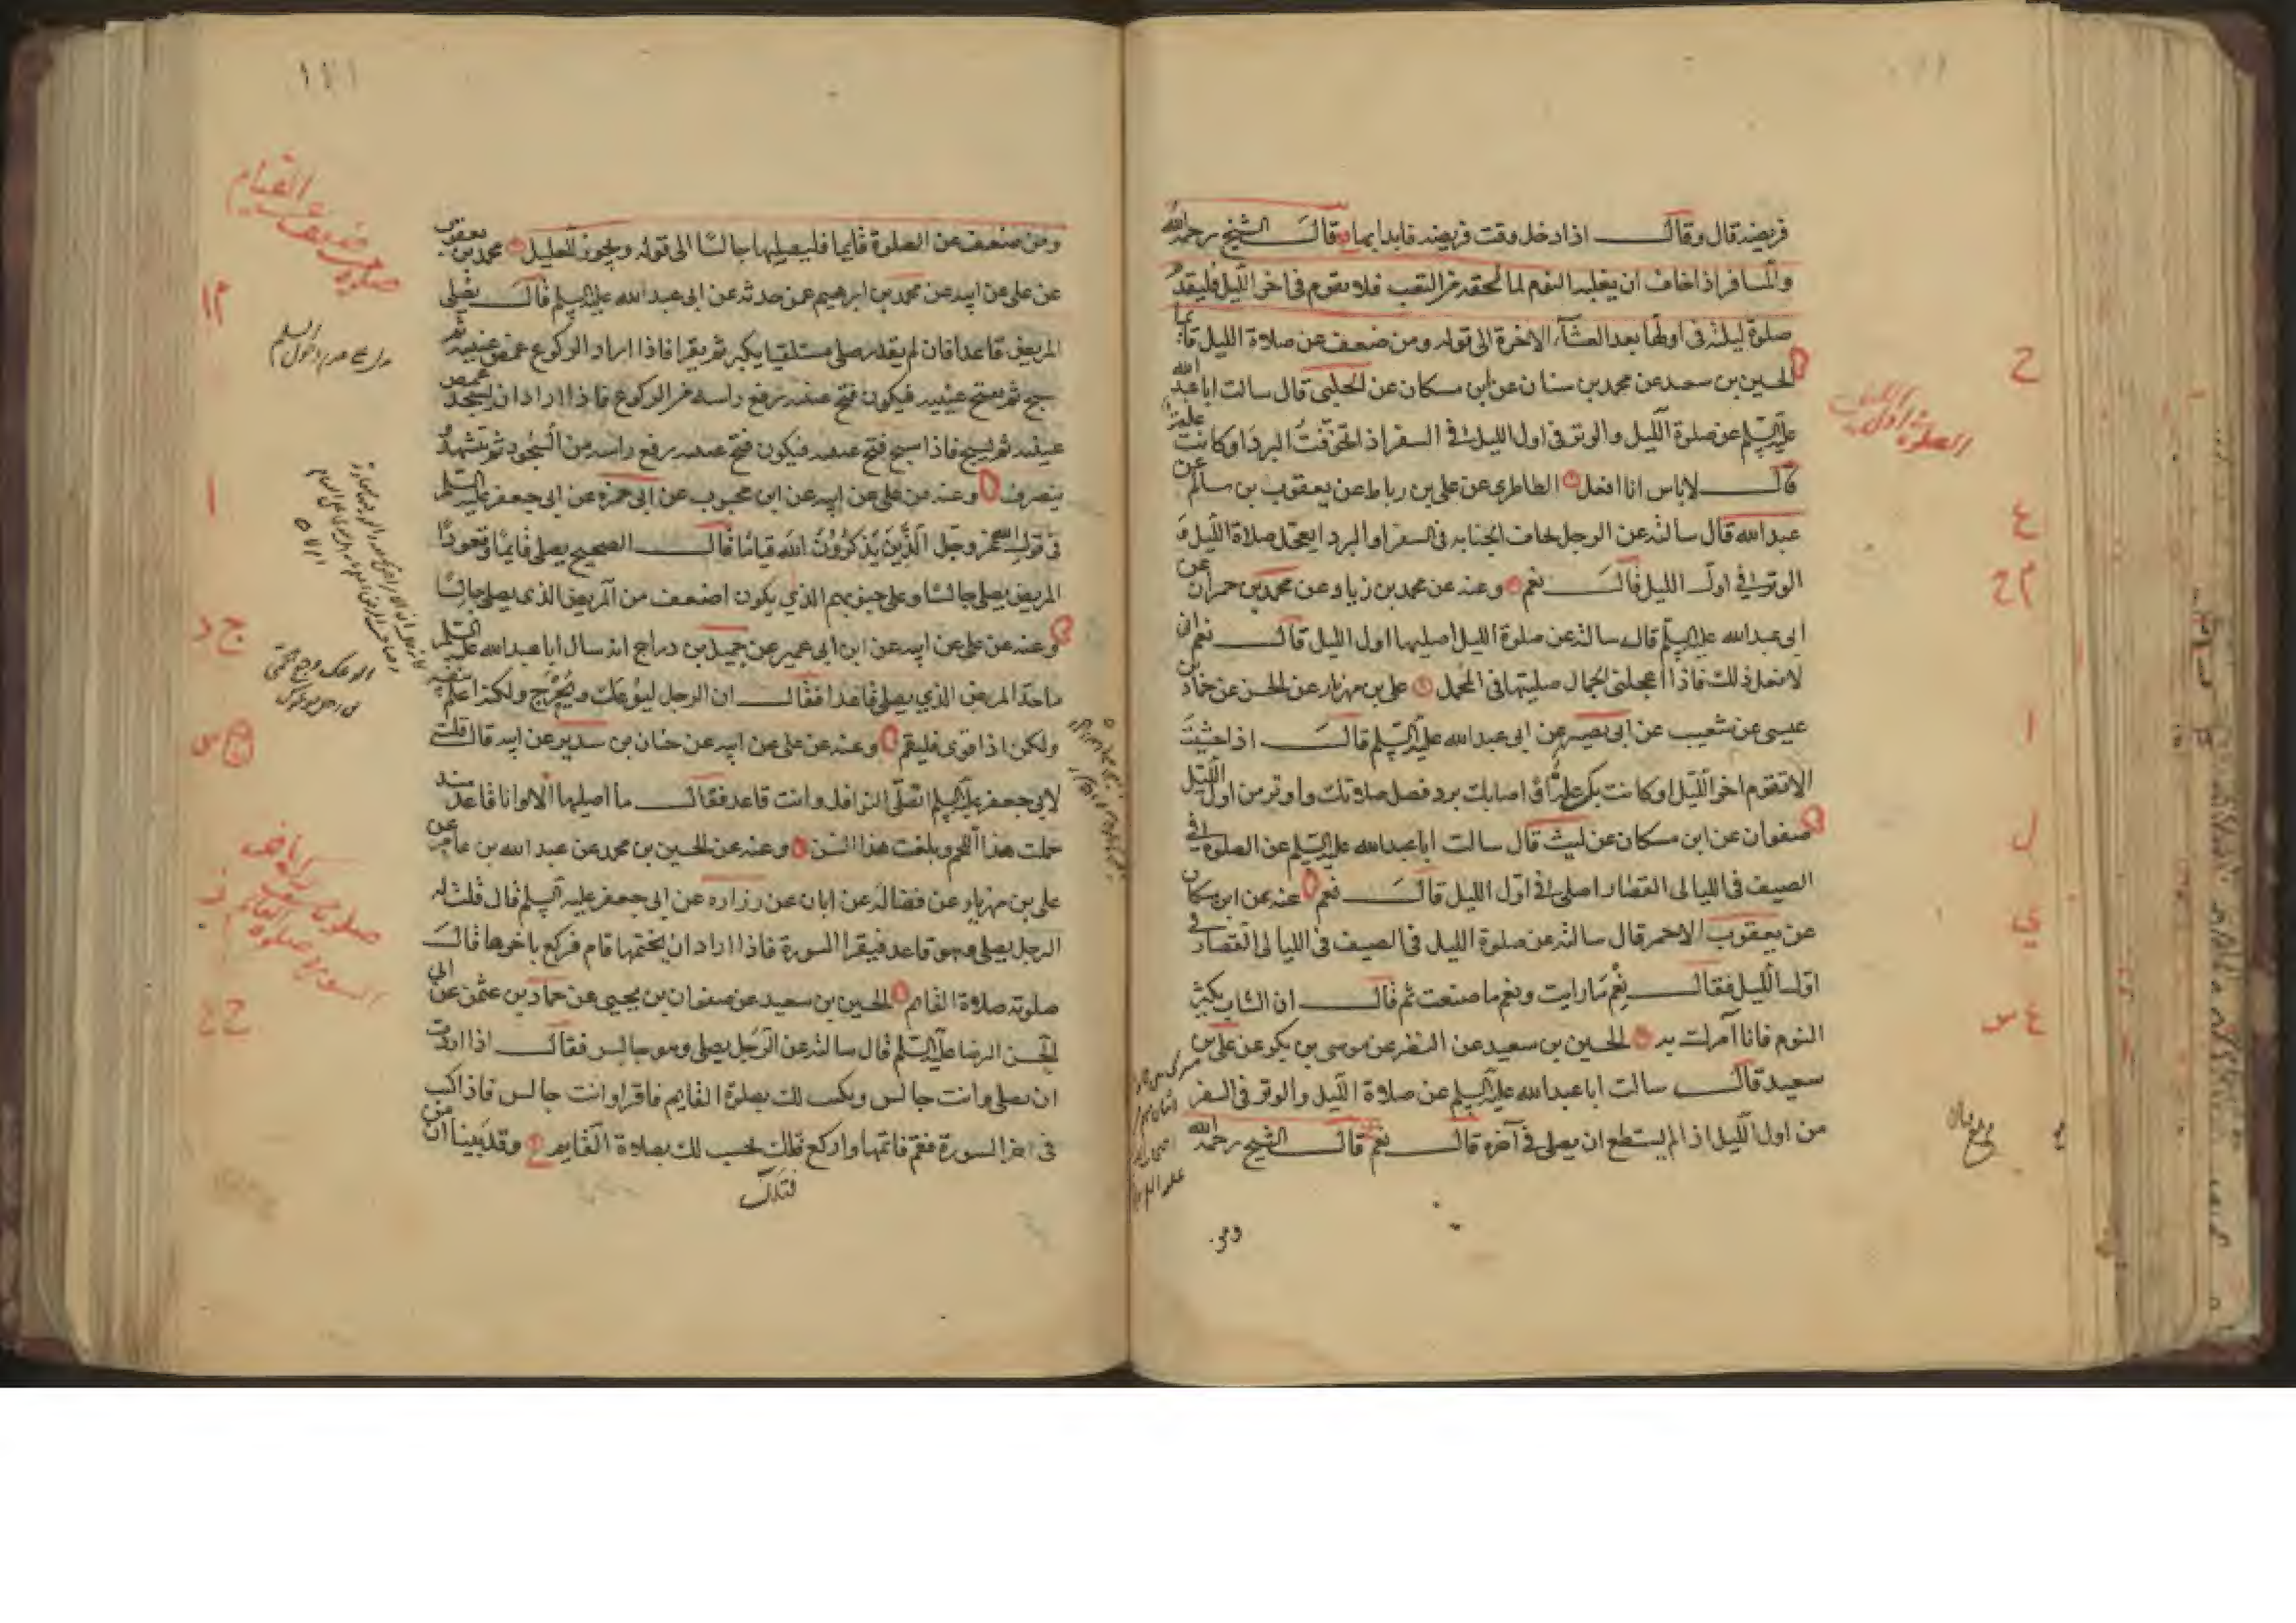 فريضة قال وقال اذا دخل وقت فريضة فابدا بها قال الشيخ رحمه الله
والمسافر اذا خاف ان يغلبه النوم لما لحقه من التعب فلا يقوم في اخر الليل فليقدم
صلوة ليلته في اولها بعد العشاء الاخرة الى قوله ومن ضعف عن صلاة الليل قائما
الحسين بن سعيد عن محمد بن سنان عن ابن مسكان عن الحلبي قال سالت ابا عبد الله
عليه السلم عن صلوة الليل والوتر في اول الليل في السفر اذا تخوفت البرد او كانت علة
قال لا باس انا افعل الطاطري عن علي بن رباط عن يعقوب بن سالم عن
عبد الله قال سالته عن الرجل يخاف الجنابة في السفر او البرد ايعجل صلاة الليل و
الوتر في اول الليل قال نعم وعنه عن محمد بن زياد عن محمد بن حمران عن
ابي عبد الله عليه السلم قال سالته عن صلوة الليل اصليها اول الليل قال نعم اني
لافعل ذلك فاذا اعجلني الجمال صليتها في المحمل علي بن مهزيار عن الحسن عن حماد بن
عيسى عن شعيب عن ابي بصير عن ابي عبد الله عليه السلم قال اذا خشيت
الا تقوم اخر الليل او كانت بك علة او اصابك برد فصل صلاتك واوتر من اول الليل
صفوان عن ابن مسكان عن ليث قال سالت ابا عبد الله عليه السلم عن الصلوة في
الصيف في الليالي القصار اصلي في اول الليل قال نعم عنه عن ابن مسكان
عن يعقوب الاحمر قال سالته عن صلوة الليل في الصيف في الليالي القصار في
اول الليل فقال نعم ما رايت ونعم ما صنعت ثم قال ان الشاب يكثر
النوم فانا آمرك به الحسين بن سعيد عن النضر عن موسى بن بكر عن علي بن
سعيد قال سالت ابا عبد الله عليه السلم عن صلاة الليل والوتر في السفر
من اول الليل اذا لم يستطع ان يصلي في آخره قال نعم قال الشيخ رحمه الله
ومن
الصلوة اول الليل
ح
ع
م ح
ا
ل
ي
ع س
١١١
ومن ضعف عن الصلوة قايما فليصلها جالسا الى قوله ويجوز للعليل محمد بن يعقوب
عن علي عن ابيه عن محمد بن ابرهيم عمن حدثه عن ابي عبد الله عليه السلم قال يصلي
المريض قاعدا فان لم يقدر صلى مستلقيا يكبر ثم يقرا فاذا اراد الركوع غمض عينيه ثم
سبح ثم يفتح عينيه فيكون فتح عينيه رفع راسه من الركوع فاذا اراد ان يسجد غمض
عينيه ثم يسبح فاذا سبح فتح عينيه فيكون فتح عينيه رفع راسه من السجود ثم يتشهد و
ينصرف وعنه عن علي عن ابيه عن ابن محبوب عن ابي حمزه عن ابي جعفر عليه السلم
في قول الله عز وجل الذين يذكرون الله قياما قال الصحيح يصلي قايما وقعودا
المريض يصلي جالسا وعلى جنوبهم الذي يكون اضعف من المريض الذي يصلي جالسا
وعنه عن علي عن ابيه عن ابن ابي عمير عن جميل بن دراج انه سال ابا عبد الله عليه السلم
ما حد المريض الذي يصلي قاعدا فقال ان الرجل ليوعك ويحرج ولكنه اعلم بنفسه
ولكن اذا قوى فليقم وعنه عن علي عن ابيه عن حنان بن سدير عن ابيه قال قلت
لابي جعفر عليه السلم اتصلي النوافل وانت قاعد فقال ما اصليها الا وانا قاعد منذ
حملت هذا اللحم وبلغت هذا السن وعنه عن الحسين بن محمد عن عبد الله بن عامر عن
علي بن مهزيار عن فضالة عن ابان عن زراره عن ابي جعفر عليه السلم قال قلت له
الرجل يصلي وهو قاعد فيقرا السورة فاذا اراد ان يختمها قام فركع باخرها قال
صلوته صلاة القائم الحسين بن سعيد عن صفوان بن يحيى عن حماد بن عثمن عن ابي
الحسن الرضا عليه السلم قال سالته عن الرجل يصلي وهو جالس فقال اذا اردت
ان تصلي وانت جالس ويكتب لك بصلوة القايم فاقرا وانت جالس فاذا كنت
في اخر السورة فقم فاتمها واركع فتلك تحسب لك بصلاة القايم وقد بينا ان من
فتلك
صلوة ضعيف عن القيام
م ا
ا
ج د
ح س
ح ع
الوعك وجع الحمى